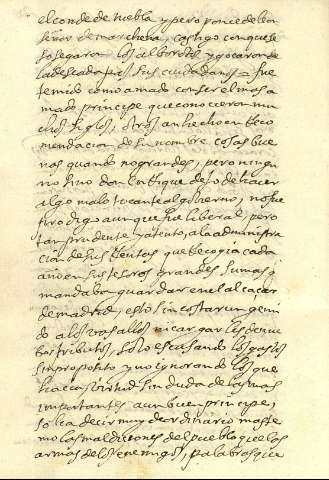 el conde de niebla y pero ponce de leon
señor de marchena castigo con que se
sosegaron los alborotos y gozaron de
la deseada paz sus ciudadanos = fue
temido como amado con ser el mas a
mado principe que conocieron mu
chos siglos, otros an hecho en reco
mendacion de su nombre cosas bue
nas quando no grandes, pero ningu
no sino don enrrique dejo de hacer
algo malo tocante al gobierno, no fue
prodigo aunque fue liberal, pero
tan prudente y atento, a la administra
cion de sus rentas que recogia cada
año en sus tesoros grandes sumas q
mandaba guardar en el alcaçar
de madrid, esto sin costar un gemi
do a los vasallos ni cargarles de nue
bos tributos, solo escusando los gastos
sin proposito y no ignorando los que
hacia virtud sin duda de las mas
importantes a un buen principe,
solia decir muy de ordinario mas te
mo las maldiciones del pueblo que las
armas de los enemigos, palabras que